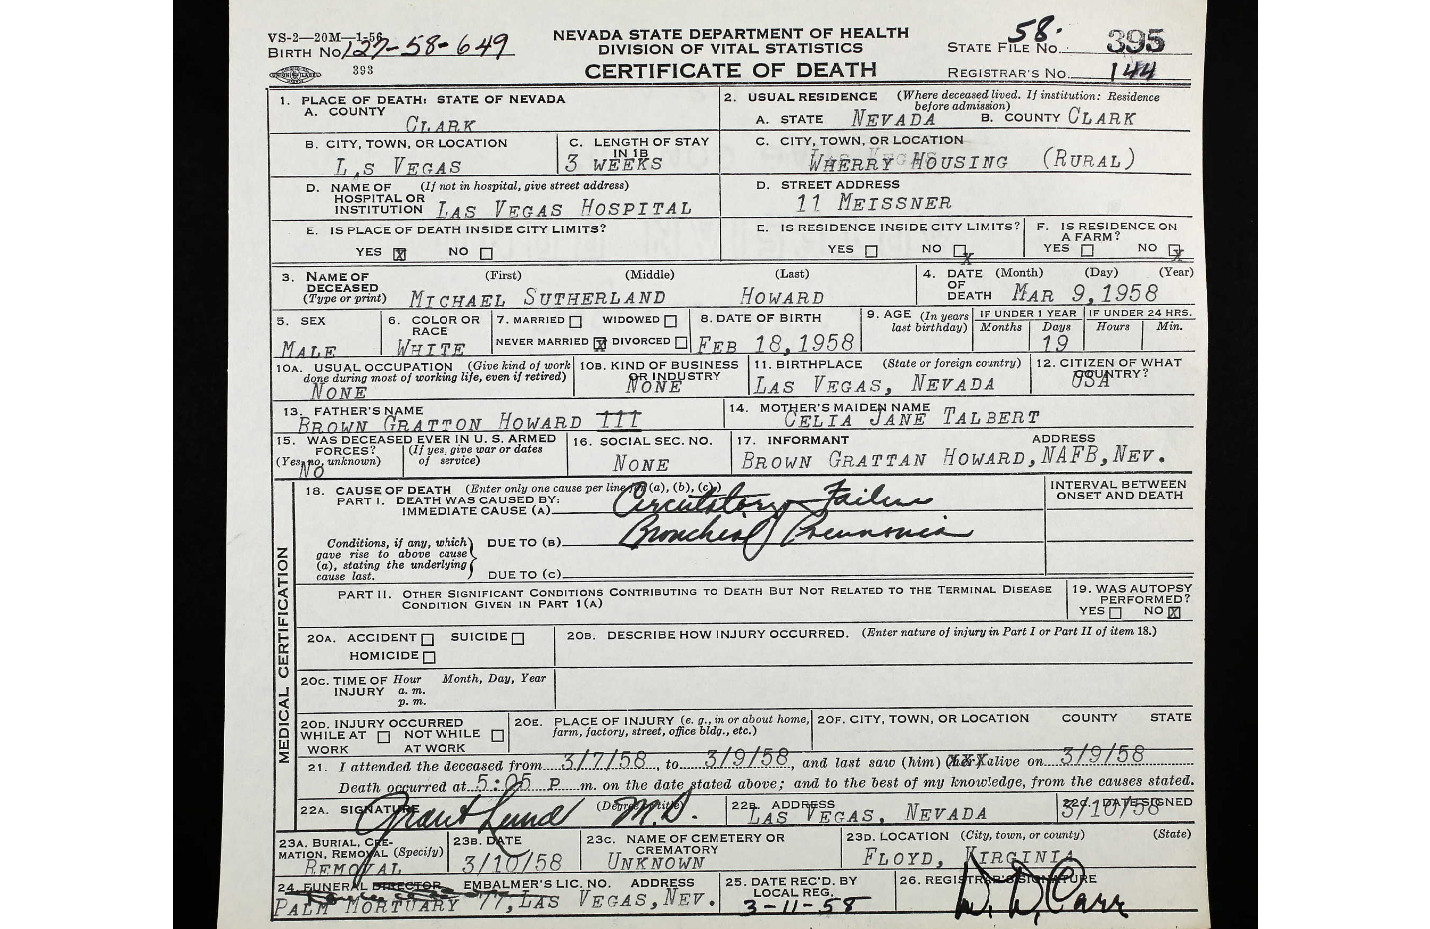 VS-2—20M—1-56
BIRTH NO. 127-58-649
393
NEVADA STATE DEPARTMENT OF HEALTH
DIVISION OF VITAL STATISTICS
CERTIFICATE OF DEATH
STATE FILE NO. 58. 395
REGISTRAR'S NO. 144
1. PLACE OF DEATH: STATE OF NEVADA
A. COUNTY
CLARK
2. USUAL RESIDENCE (Where deceased lived. If institution: Residence before admission)
A. STATE NEVADA B. COUNTY CLARK
B. CITY, TOWN, OR LOCATION
LAS VEGAS
C. LENGTH OF STAY IN 1B
3 WEEKS
C. CITY, TOWN, OR LOCATION
WHERRY HOUSING (RURAL)
D. NAME OF (If not in hospital, give street address)
HOSPITAL OR
INSTITUTION LAS VEGAS HOSPITAL
D. STREET ADDRESS
11 MEISSNER
E. IS PLACE OF DEATH INSIDE CITY LIMITS?
YES X NO
E. IS RESIDENCE INSIDE CITY LIMITS?
YES NO X
F. IS RESIDENCE ON A FARM?
YES NO X
3. NAME OF DECEASED (Type or print) (First) (Middle) (Last)
MICHAEL SUTHERLAND HOWARD
4. DATE OF DEATH (Month) (Day) (Year)
MAR 9, 1958
5. SEX
MALE
6. COLOR OR RACE
WHITE
7. MARRIED WIDOWED
NEVER MARRIED X DIVORCED
8. DATE OF BIRTH
FEB 18, 1958
9. AGE (In years last birthday)
IF UNDER 1 YEAR
Months Days
19
IF UNDER 24 HRS.
Hours Min.
10A. USUAL OCCUPATION (Give kind of work done during most of working life, even if retired)
NONE
10B. KIND OF BUSINESS OR INDUSTRY
NONE
11. BIRTHPLACE (State or foreign country)
LAS VEGAS, NEVADA
12. CITIZEN OF WHAT COUNTRY?
USA
13. FATHER'S NAME
BROWN GRATTON HOWARD III
14. MOTHER'S MAIDEN NAME
CELIA JANE TALBERT
15. WAS DECEASED EVER IN U. S. ARMED FORCES?
(Yes, no, unknown) (If yes, give war or dates of service)
NO
16. SOCIAL SEC. NO.
NONE
17. INFORMANT ADDRESS
BROWN GRATTAN HOWARD, NAFB, NEV.
MEDICAL CERTIFICATION
18. CAUSE OF DEATH (Enter only one cause per line for (a), (b), (c))
PART I. DEATH WAS CAUSED BY:
IMMEDIATE CAUSE (A) Circulatory Failure
INTERVAL BETWEEN ONSET AND DEATH
Conditions, if any, which gave rise to above cause (a), stating the underlying cause last.
DUE TO (B) Bronchial Pneumonia
DUE TO (C)
PART II. OTHER SIGNIFICANT CONDITIONS CONTRIBUTING TO DEATH BUT NOT RELATED TO THE TERMINAL DISEASE
CONDITION GIVEN IN PART 1(A)
19. WAS AUTOPSY PERFORMED?
YES NO X
20A. ACCIDENT SUICIDE
HOMICIDE
20B. DESCRIBE HOW INJURY OCCURRED. (Enter nature of injury in Part I or Part II of item 18.)
20C. TIME OF INJURY Hour Month, Day, Year
a. m.
p. m.
20D. INJURY OCCURRED
WHILE AT WORK NOT WHILE AT WORK
20E. PLACE OF INJURY (e. g., in or about home, farm, factory, street, office bldg., etc.)
20F. CITY, TOWN, OR LOCATION COUNTY STATE
21. I attended the deceased from 3/7/58, to 3/9/58, and last saw (him) alive on 3/9/58
Death occurred at 5:05 P m. on the date stated above; and to the best of my knowledge, from the causes stated.
22A. SIGNATURE (Degree or title)
Grant Lund M.D.
22B. ADDRESS
LAS VEGAS, NEVADA
22C. DATE SIGNED
3/10/58
23A. BURIAL, CREMATION, REMOVAL (Specify)
REMOVAL
23B. DATE
3/10/58
23C. NAME OF CEMETERY OR CREMATORY
UNKNOWN
23D. LOCATION (City, town, or county) (State)
FLOYD, VIRGINIA
24. FUNERAL DIRECTOR EMBALMER'S LIC. NO. ADDRESS
PALM MORTUARY 77, LAS VEGAS, NEV.
25. DATE REC'D. BY LOCAL REG.
3-11-58
26. REGISTRAR'S SIGNATURE
W. D. Carr